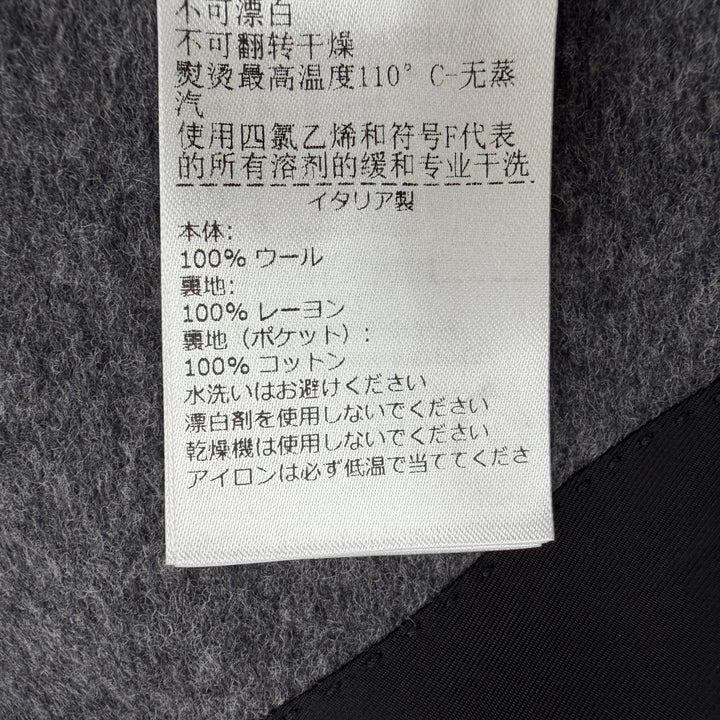 不可漂白
不可翻转干燥
熨烫最高温度110°C-无蒸
汽
使用四氯乙烯和符号F代表
的所有溶剂的缓和专业干洗
イタリア製
本体:
100% ウール
裏地:
100% レーヨン
裏地 (ポケット) :
100% コットン
水洗いはお避けください
漂白剤を使用しないでください
乾燥機は使用しないでください
アイロンは必ず低温で当ててくださ